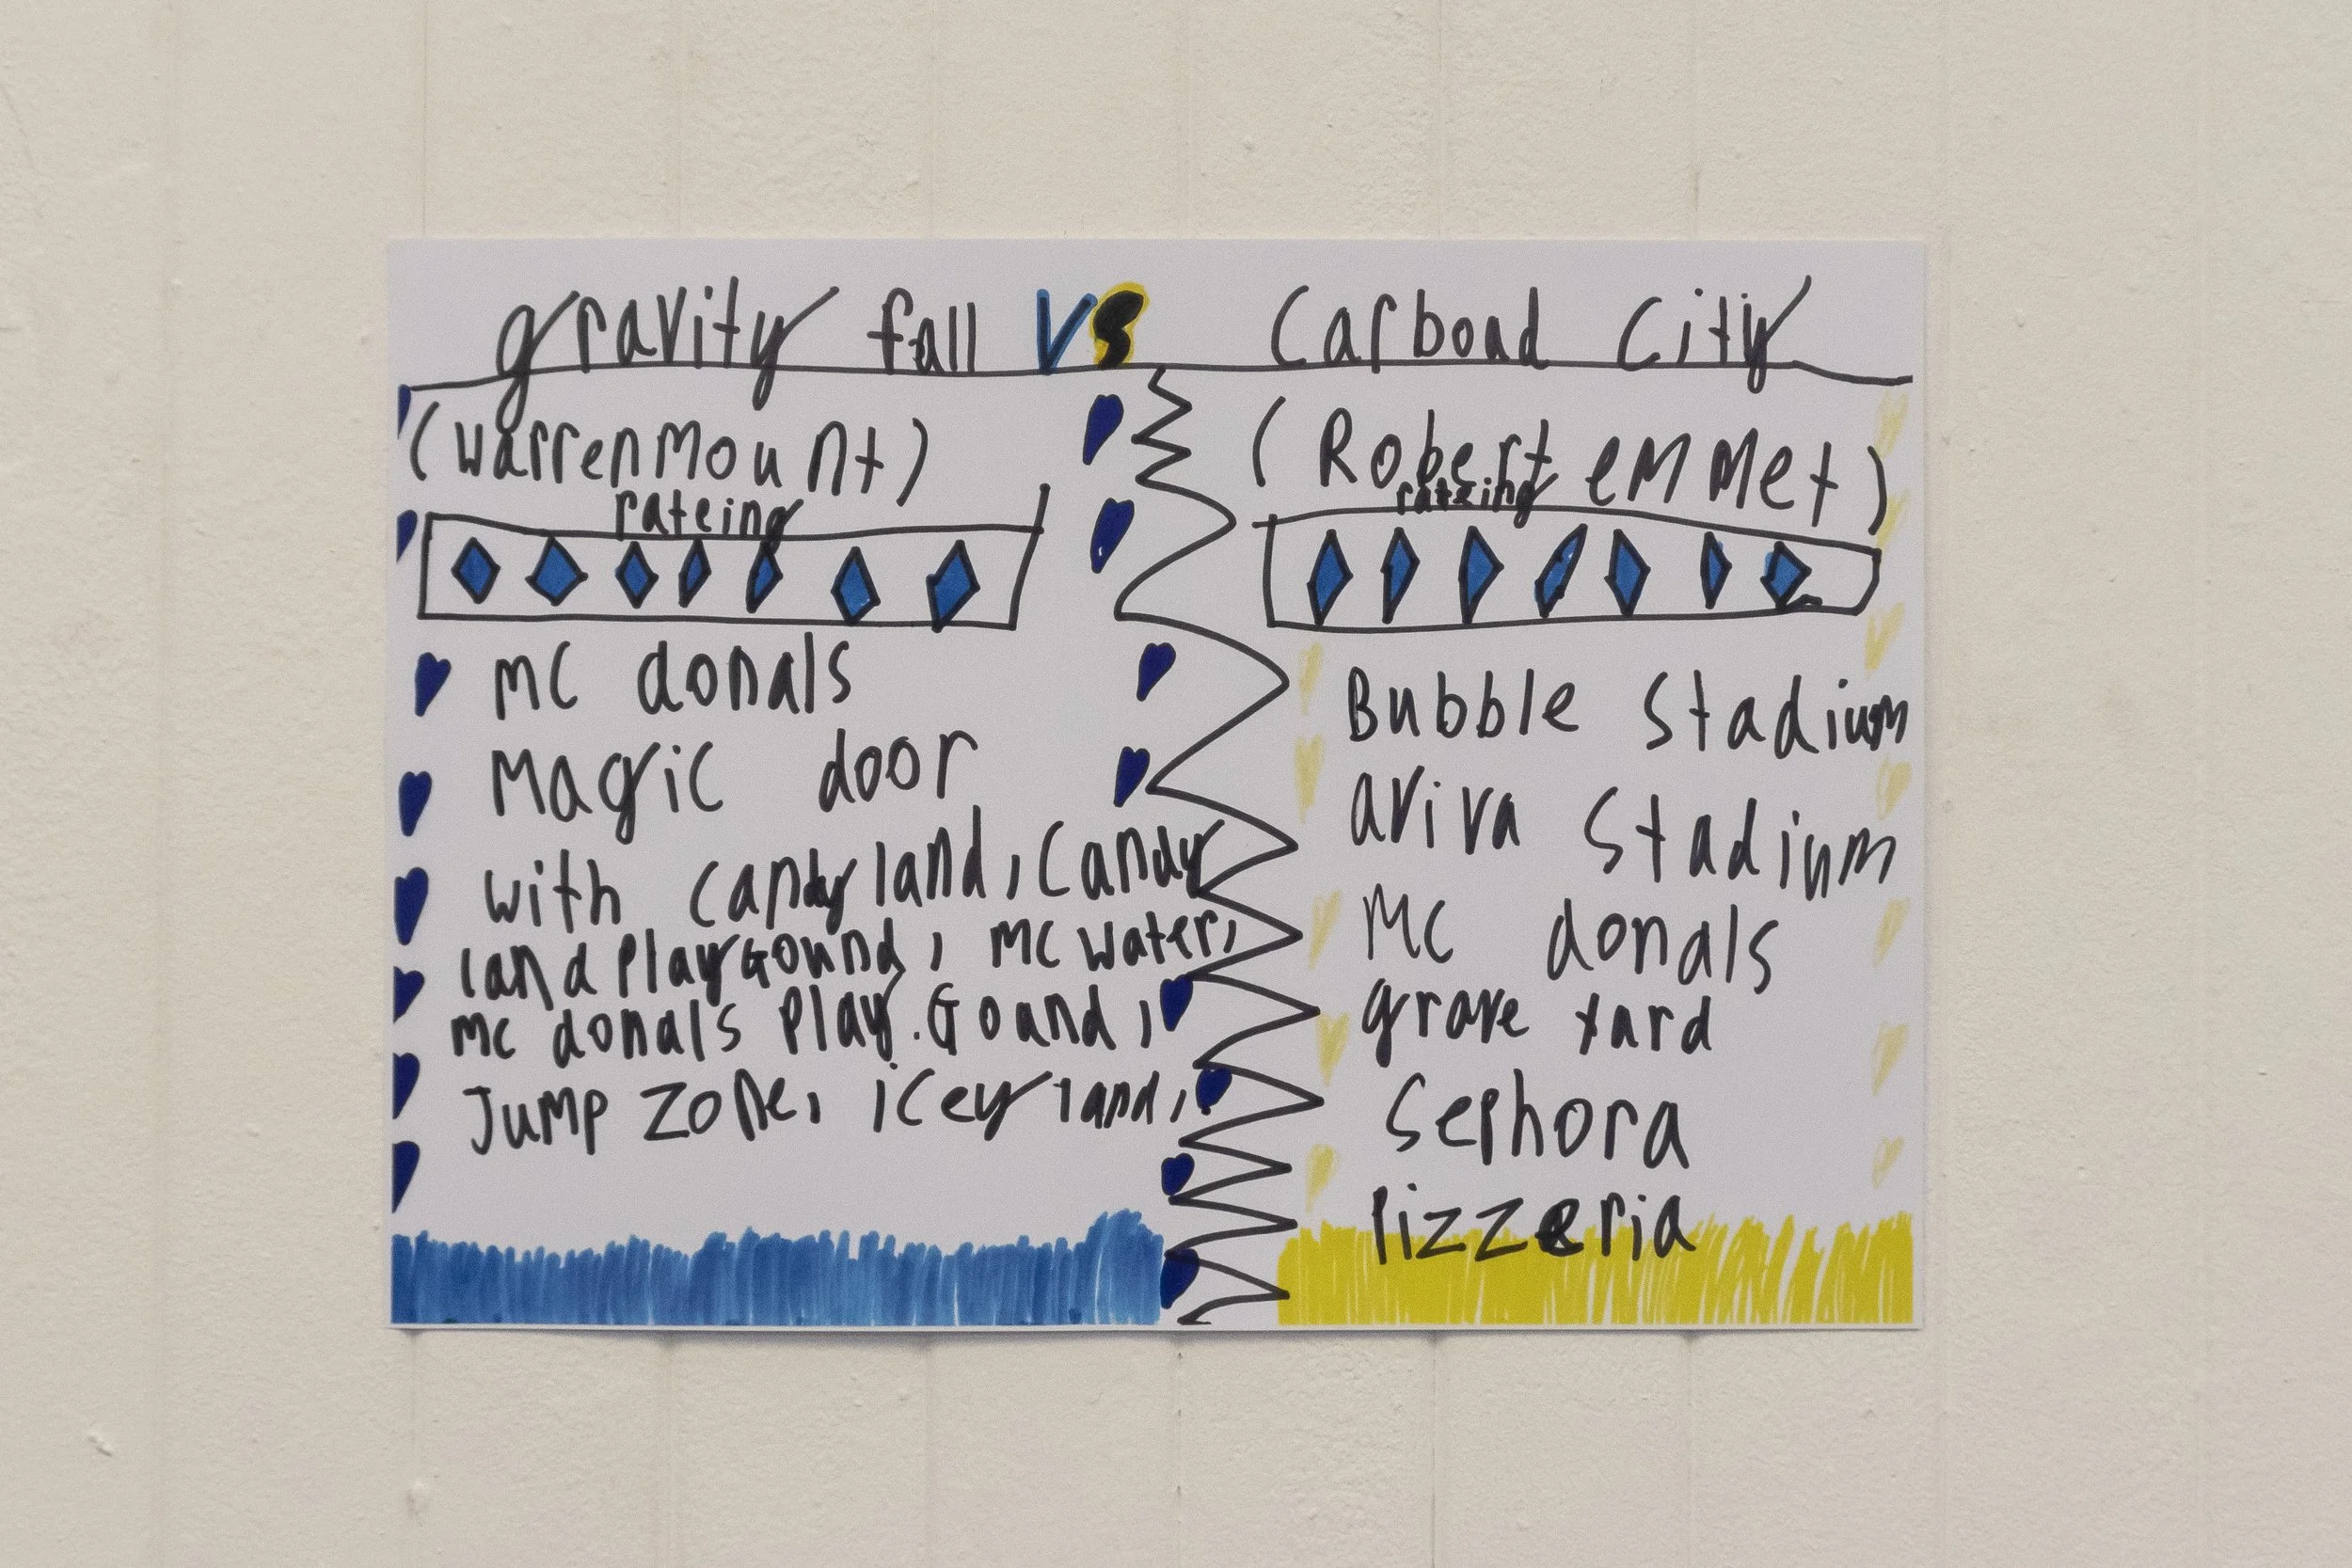 gravity fall VS Carboad City
(Warrenmount)
rateing
mc donals
Magic door
with candy land, Candy
land PlayGound, mc water,
mc donals Play.Goand,
Jump Zone, icey land,
(Robert emmet)
rateing
Bubble Stadium
aviva Stadium
Mc donals
grave yard
Sephora
Pizzeria